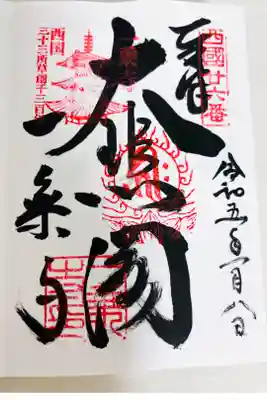 西國廿六番
奉拝
令和五年一月八日
大悲閣
一乗寺
西国
三十三所草創千三百年